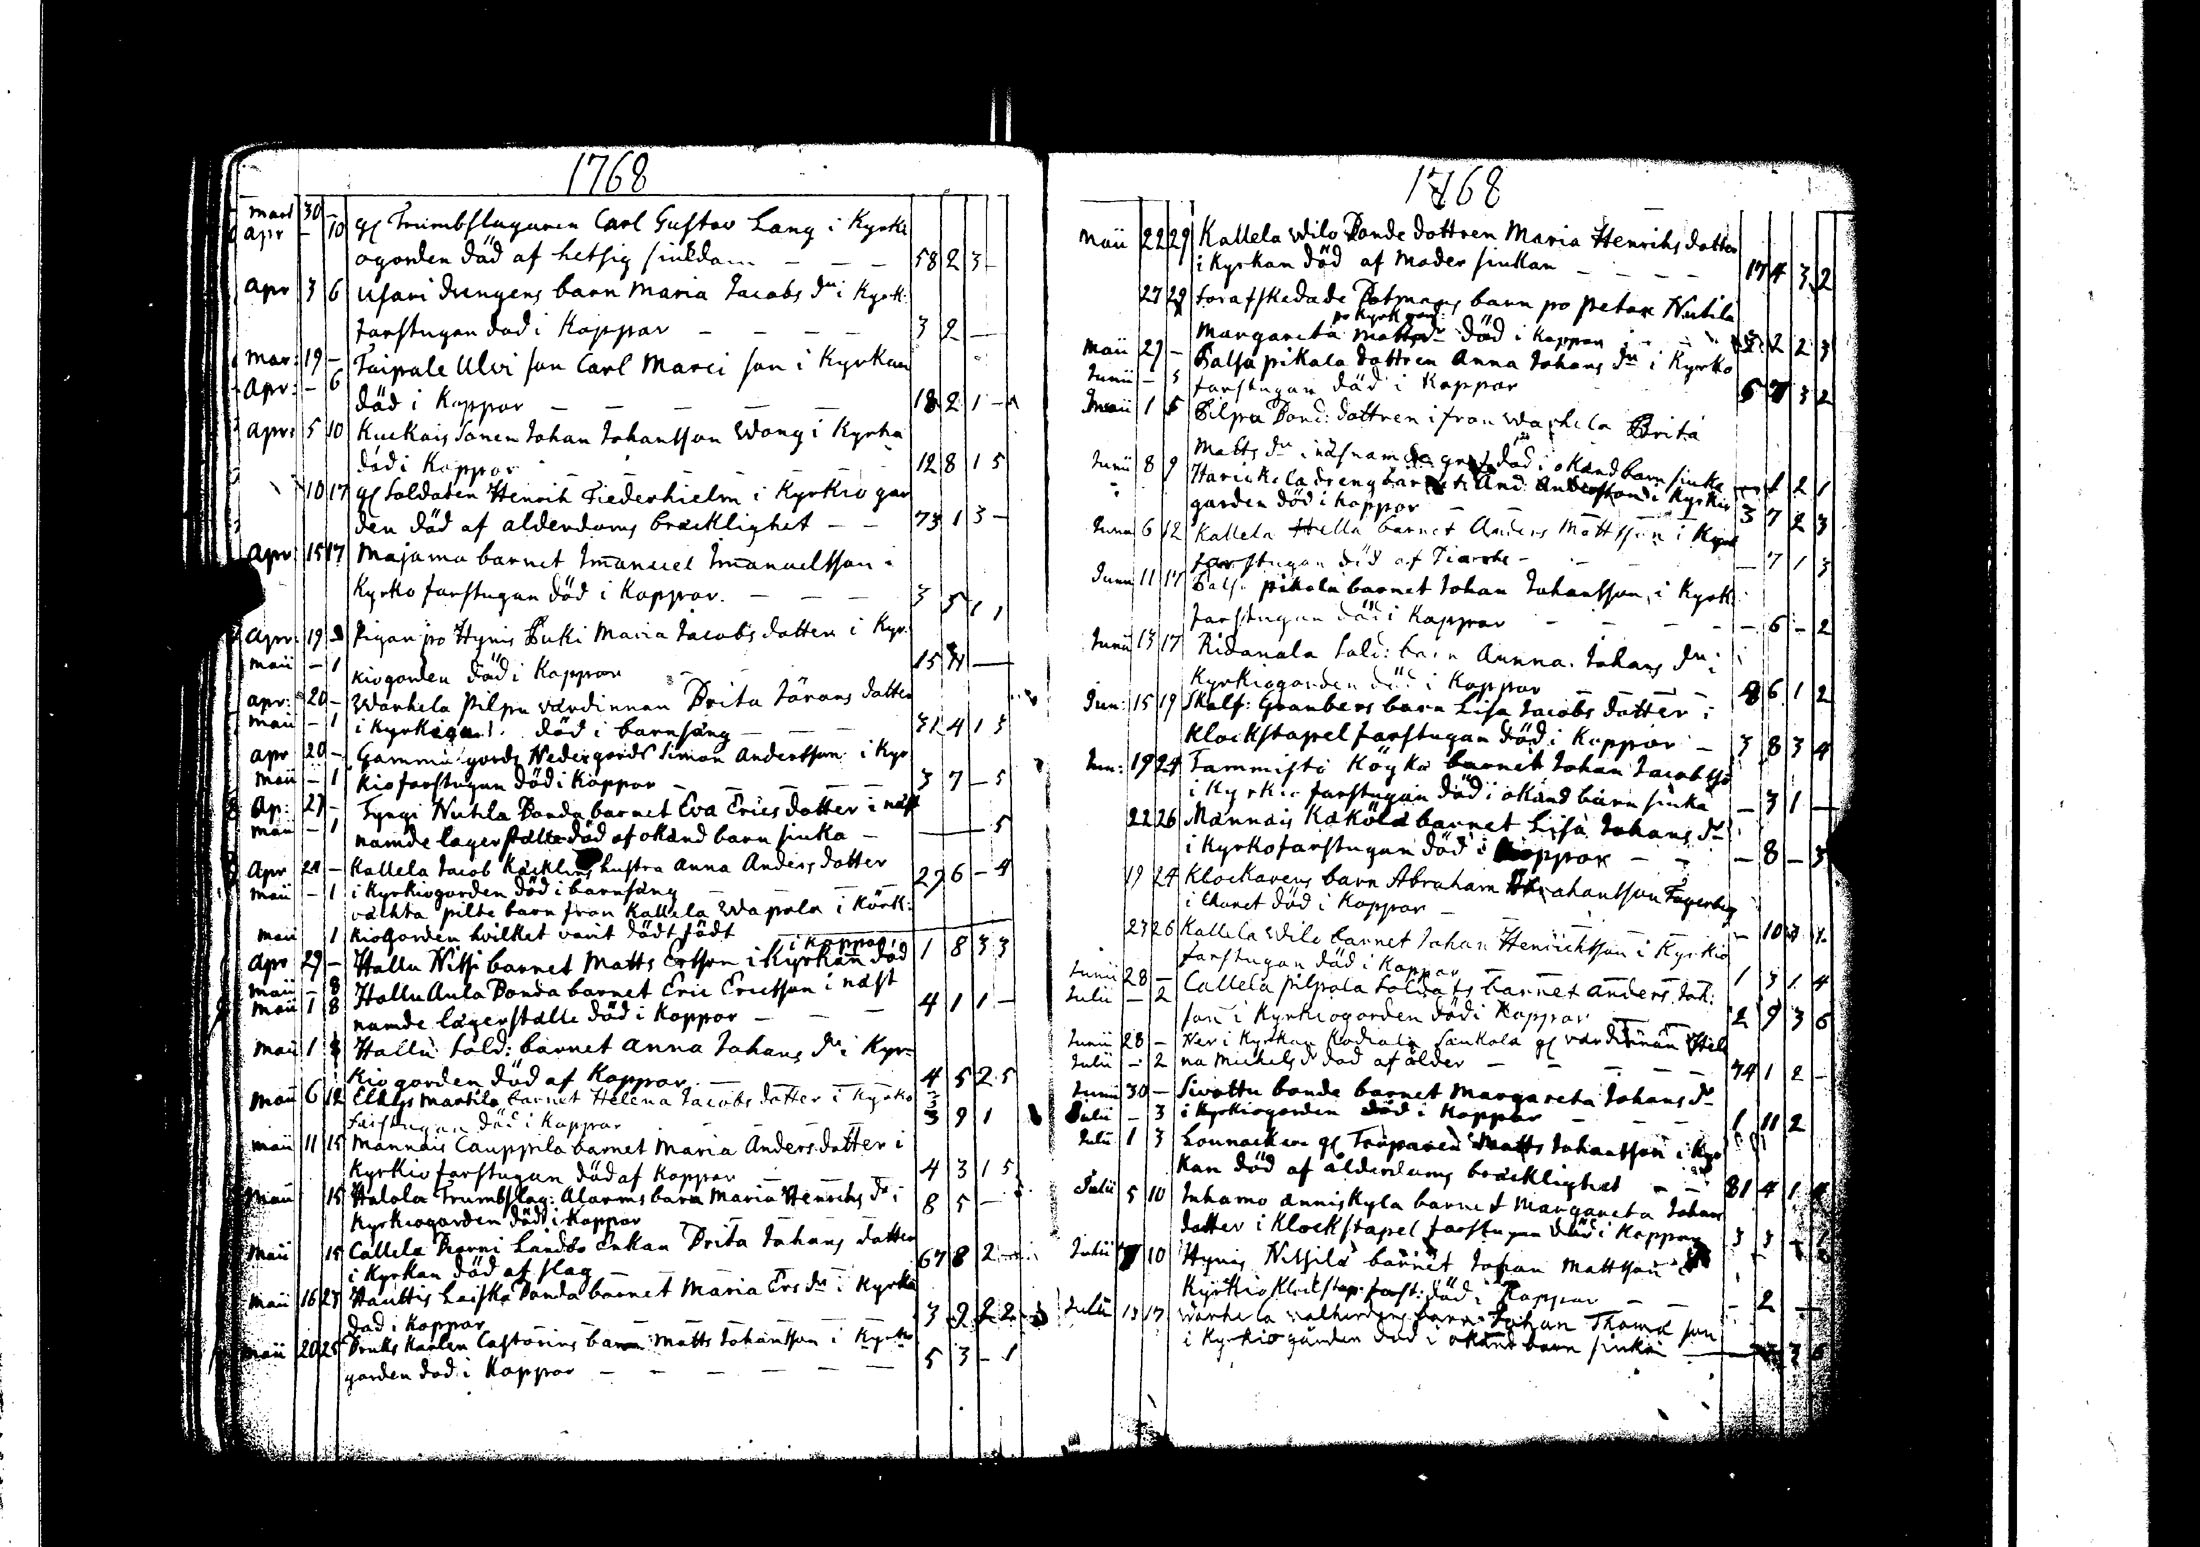 1768
Mart 30 –
apr – 10 gl Trumbslagaren Carl Gustav Lang i Kyrki
ogorden död af hetsig siukdam — — — 58 2 3 –
apr 3 6 Usari drengens barn Maria Jacobs dr i Kyrk:
farstugan död i Koppor — — — — 3 2 —
Mar: 19 – Taipale Ulvi son Carl Marci son i Kyrkan
Apr: – 6
död i Koppor — — — — 18 2 1 –
Apr: 5 10 Kuckais Sonen Johan Johansson Wang i Kyrka
död i Koppor 12 8 1 5
10 17 gl Soldaten Henrih Fiederhielm i Kyrkio gar
den död af alderdoms bräcklighet – – 73 1 3 –
Apr: 15 17 Majama barnet Imanuel Imanuelsson i
Kyrko farstugan död i Koppor. — — — 3 5 1 1
Apr: 19 – Pigan pro Hynis Puki Maria Jacobs dotter i Kyr
maii – 1
kiogorden död i Koppor — 15 —
apr: 20 – Warhela Pilpu värdinnan Brita Jörans dotter
maii – 1 i Kyrkiogar: död i barnsäng — — — 31 4 1 3
apr 20 – Gammu gords Nedergords Simon Andersson i Kyr
maii – 1 kio farstugan död i Koppor — — — 3 7 – 5
Ap: 27 – Tyngi Nutila Bonda barnet Eva Erics dotter i näst
maii – 1
namde lagerställe död af okänd barn siuka — — 5
Apr 21 – Kallela Jacob Käcklins hustru Anna Anders dotter
maii – 1 i Kyrkiogorden död i barnsäng — — — 27 6 – 4
oächta pilte barn fron Kallela Wapola i Körk:
maii 1 kiogorden hvilket varit dödt födt
i Koppor
Apr 29 – Hallu Nissi barnet Matts Ersson i Kyrkan död 1 8 3 3
maii – 8
maii 1 8 Hallu Aula Bonda barnet Eric Ericsson i näst
namde lägerställe död i Koppor — — — 4 1 1 –
Maii 1 8 Hallu Sold: barnet Anna Johans dr i Kyr-
kiogorden död af Koppor — 4 5 2 5
Maii 6 12 Elkys Martila barnet Helena Jacobs dotter i Kyrko
farstugan död i Koppor — — — 3 9 1
maii 11 15 Mannais Cauppila barnet Maria Anders dotter i
Kyrkio farstugan död af Koppor — 4 3 1 5
Maii 15 Halola Trumbslag: Alarms barn Maria Henrichs dr i 8 5 –
Kyrkiogorden död i Koppor
Maii 15 Callela Biorni Landbo Enkan Brita Johans dotter
i Kyrkan död af slag — — — 67 8 2 –
Maii 16 23 Hauttis Laiska Bonda barnet Maria Ers dr i Kyrka
död i Koppor — — — 3 9 2 2
Maii 20 25 Bruks Karlen Castorins barn Matts Johansson i Kyrko
gorden död i Koppor — — — — — 5 3 – 1
1768
Maii 22 29 Kallela Wilo Bonde dottren Maria Henrihs dotter
i Kyrkan död af Moder siukan — — — — 17 4 3 2
27 29 forafskedade Botsmans barn pro Petar Nutila
po Kyrk gord:
Margareta Matts dr död i Koppor 2 2 3
Maii 29 – Balsa pikala dottren Anna Johans dr i Kyrko
Junii – 5 farstugan död i Koppor 5 7 3 2
Junii 1 5 Pilpu Bond: dottren ifron Warhela Brita
Matts dr i näsnamde graf död i okänd barn siuka 1 2 1
Junii 8 9 Harickela dreng barnet And: Andersson i Kyrkio
garden död i Koppor — — 3 7 2 3
Junii 6 12 Kallela Hella barnet Anders Mattsson i Kyrk
farstugan död af Tiarste – – 7 1 3
Junii 11 17 Balsa pikala barnet Johan Johansson i Kyrk:
farstugan död i Koppor — — — – 6 – 2
Junii 13 17 Ridanala Sold: barn Annna Johans dr i
Kyrkiogorden död i Koppor — — — 8 6 1 2
Jun: 15 19 Skalf: Granbers barn Lisa Jacobs dotter i
Klockstapel farstugan död i Koppor — 3 8 3 4
Jun: 19 24 Tammisti Köykä barnet Johan Jacobsso
i Kyrkio farstugan död i okänd barn siuka — 3 1 —
22 26 Mannais Kaköla barnet Lisa Johans dr
i Kyrkofarstugan död i Koppor — — — 8 – 3
19 24 Klockarens barn Abraham Abrahamsson Fagerberg
i Choret död i Koppor — — 10
23 26 Kallela Wilo barnet Johan Henrichsson i Kyrkio
farstugan död i Koppor — — 1 3 1 4
Junii 28 – Callela Pilpola Soldats barnet Anders Joh:
Julii – 2
son i Kyrkiogorden död i Koppor — — 2 9 3 6
Junii 28 – Ner i Kyrkan Kodiala Saukola gl värdinnan Hele
Julii – 2 na Michels dr död af ålder — — — — 74 1 2 –
Junii 30 – Sivottu bonde barnet Margareta Johans dr
Julii – 3 i Kyrkiogorden död i Koppor — — — 1 11 2
Julii 1 3 Lounacken gl Torparen Matts Johansson i Kyr
kan död af ålderdoms bräcklighet — — 81 4 1 4
Julii 5 10 Juhamo anniskyla barnet Margareta Johans
dotter i Klockstapel farstugan död i Koppor 3 3
Julii 10 Hynis Nissilä barnet Johan Mattson i
Kyrkio Klockstap: farst: död i Koppor — — – 2 —
Julii 13 17 Warhela valherdens barn Johan Thomæ son
i Kyrkiogården död i okänd barn siuka — 3 6